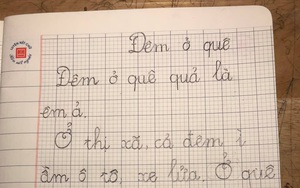 Đêm ở quê
Đêm ở quê quả là
êm ả.
Ở thị xã, cả đêm ì
ầm ô tô, xe lửa. Ở quê